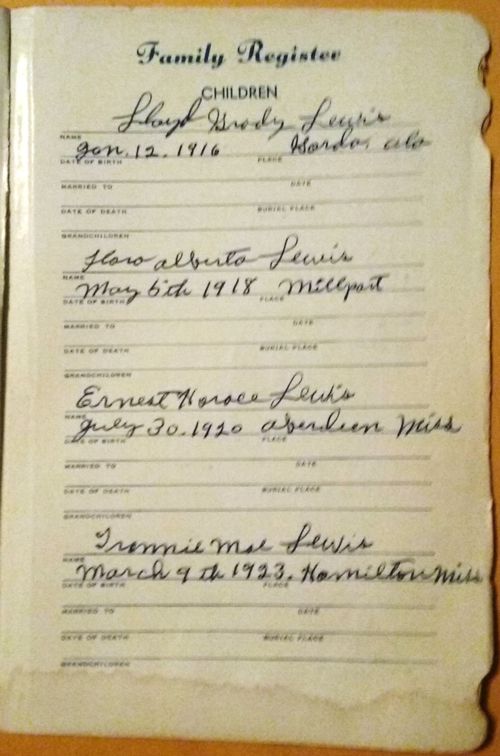 Family Register
CHILDREN
Lloyd Grady Lewis
NAME
Jan. 12. 1916 Gordo, ala
DATE OF BIRTH PLACE
MARRIED TO DATE
DATE OF DEATH BURIAL PLACE
GRANDCHILDREN
Flora alberta Lewis
NAME
May 5th 1918 Millport
DATE OF BIRTH PLACE
MARRIED TO DATE
DATE OF DEATH BURIAL PLACE
GRANDCHILDREN
Ernest Horace Lewis
NAME
July 30. 1920 aberdeen Miss
DATE OF BIRTH PLACE
MARRIED TO DATE
DATE OF DEATH BURIAL PLACE
GRANDCHILDREN
Mae Lewis
NAME
March 9th 1923. Hamilton Miss
DATE OF BIRTH PLACE
MARRIED TO DATE
DATE OF DEATH BURIAL PLACE
GRANDCHILDREN